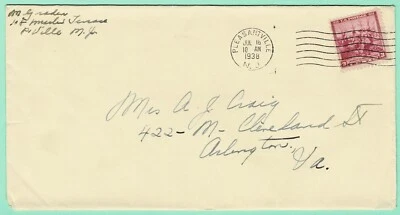 Terrace
P'Ville N.J.
PLEASANTVILLE
JUL 16
10 AM
1938
N.J.
Mrs A. J. Craig
422- N- Cleveland St
Arlington
Va.